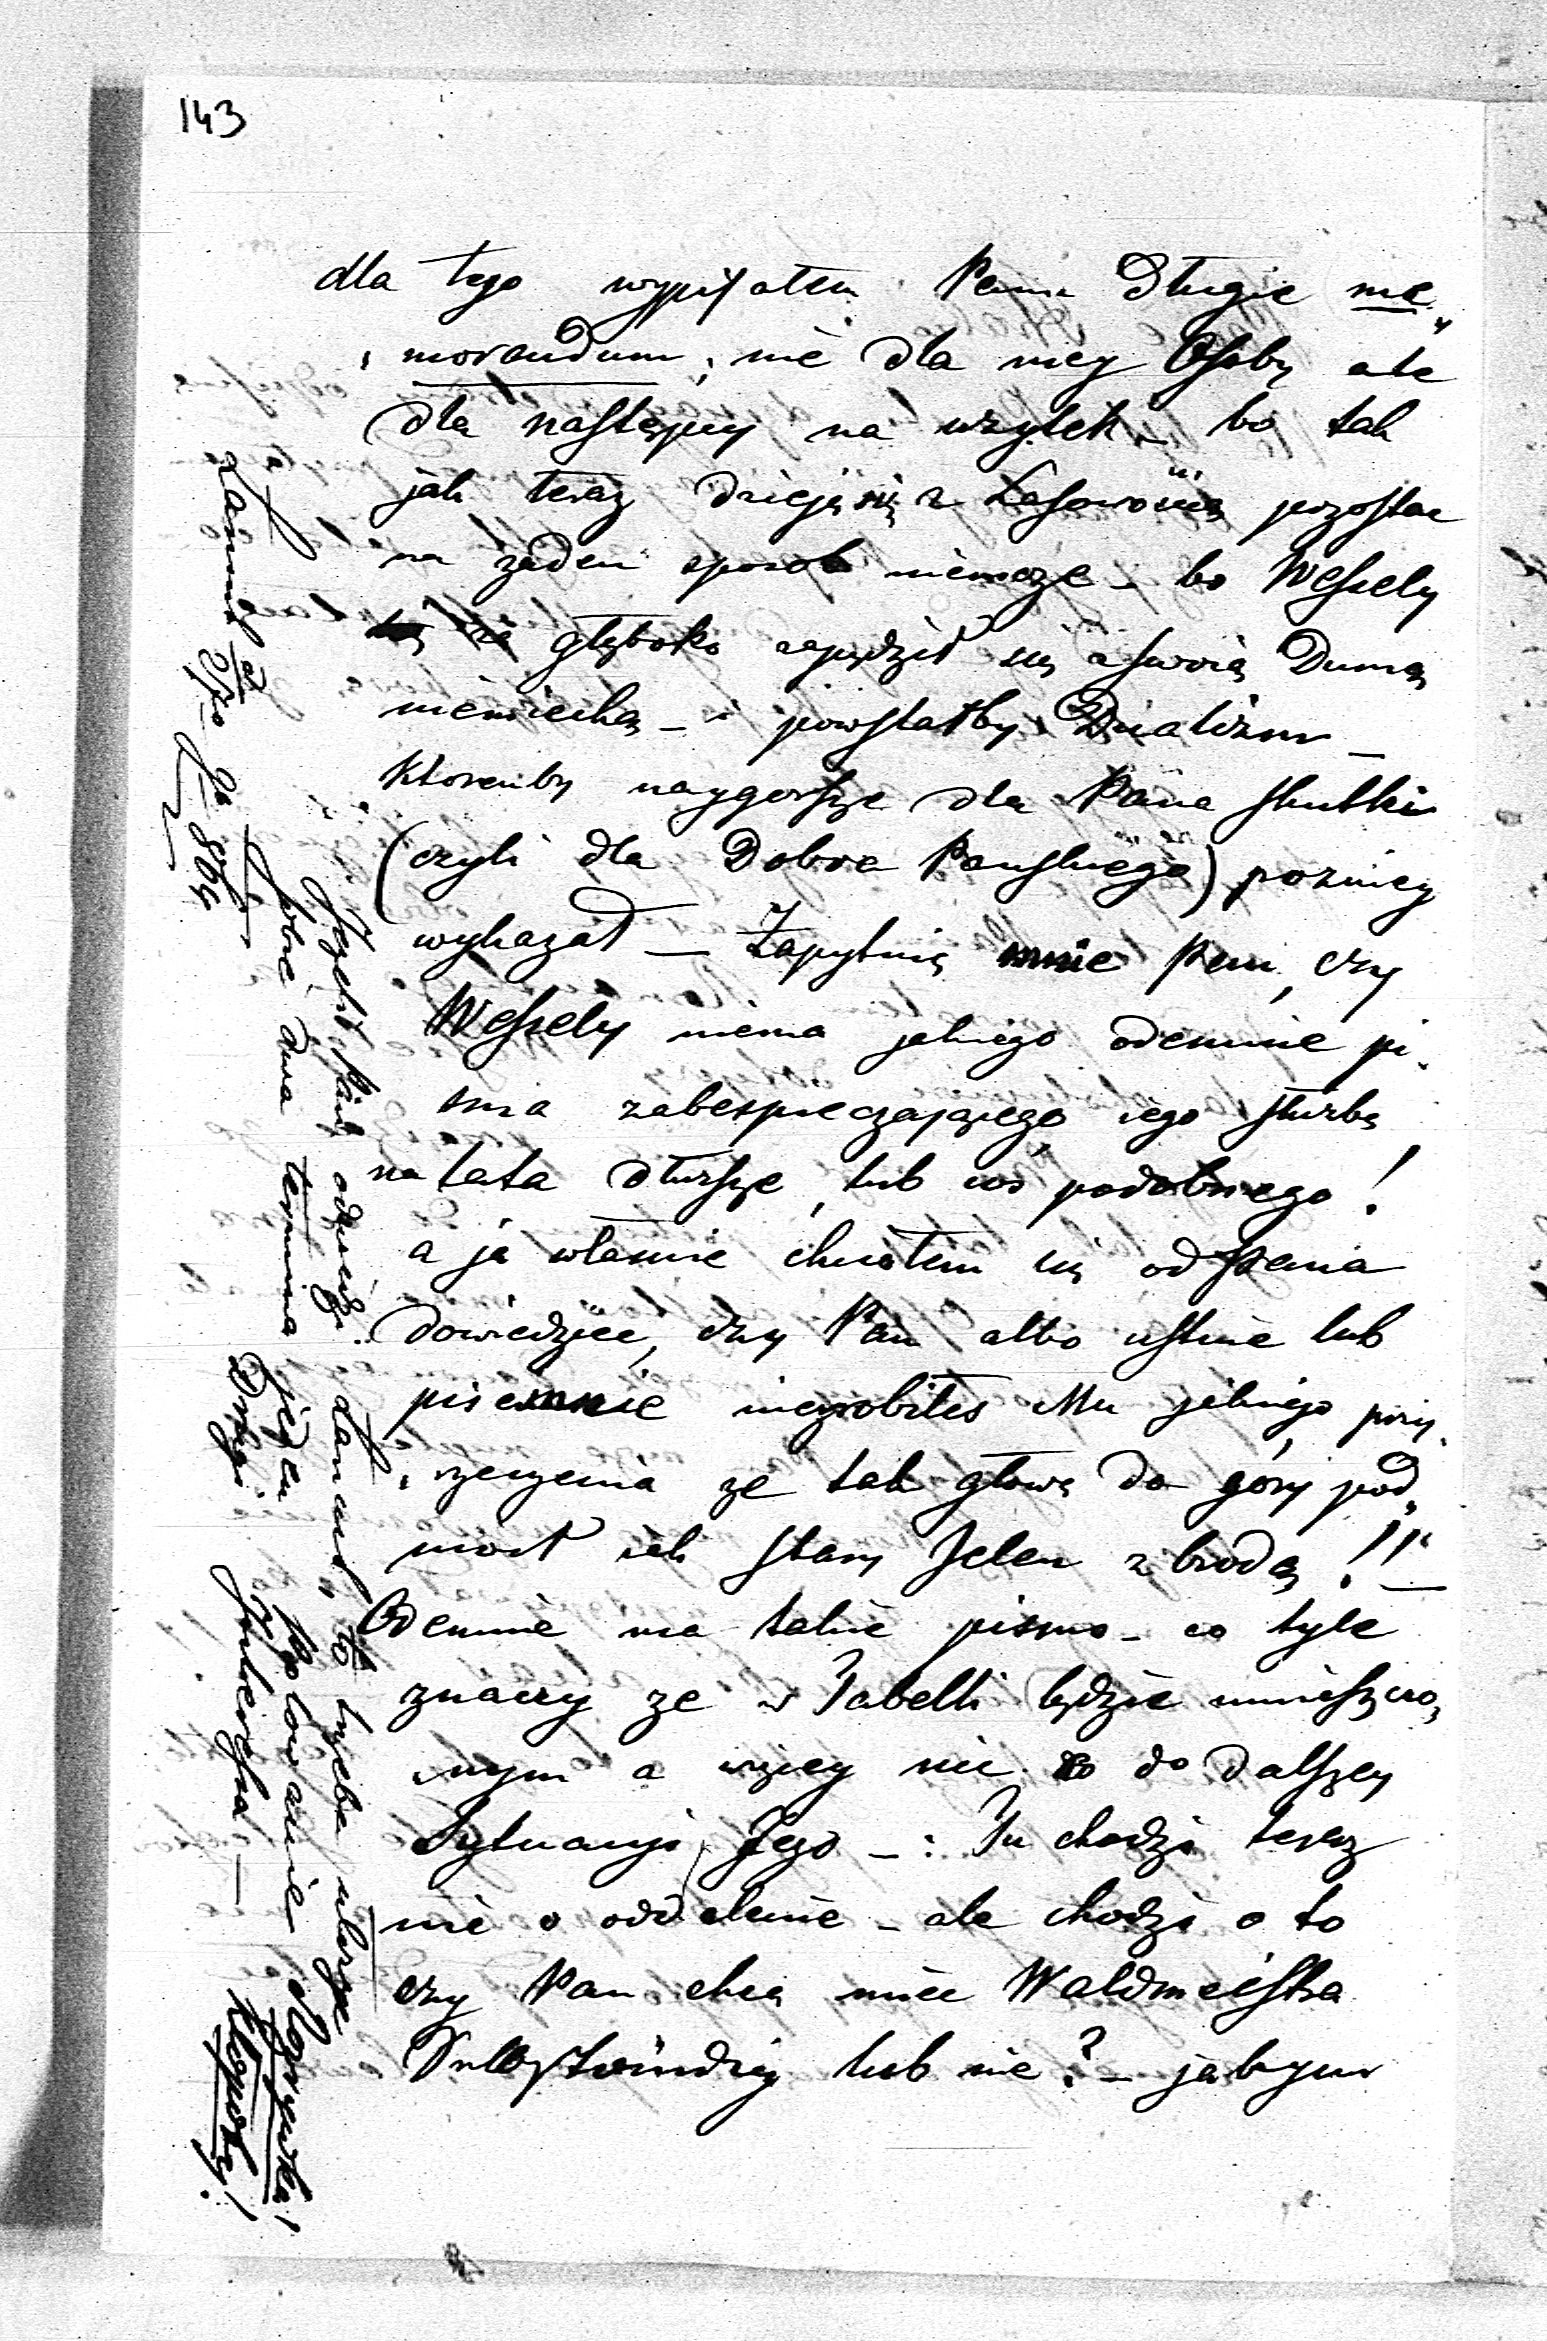 143
dla tego wypisałem Panu Długie me„
„morandum; nie dla mey Osoby ale
dla następcy na użytek – bo tak
jak teraz dzieją się z Lasowością pozostac
na żaden sposob niemoże – bo Wessely
że głęboko zapędził się z swoią Dumą
niemiecką – i powstałby Dualizm –
ktorenby naygorsze dla Pana skutki
(czyli dla Dobra Panskiego) pozniey
wykazał – Zapytuię mnie Pan, czy
Wessely niema jakiego odemnie pi„
sma zabespieczającego iego służbę
na lata dłuższe, lub coś podobnego!
a ja własnie chciałem się od Pana
dowiedziec, czy Pan albo ustnie lub
pisemnie niezrobiłes Mu jakiego przy„
„rzeczenia ze tak głowę do góry pod„
niosł jak stary Jelen z brodą!!! –
Odemnie ma takie pismo – co tyle
znaczy ze w Tabelli będzie umieszczo„
„nym a więcy nic do dalszey
Sytuacyi Jego –: Tu chodzi teraz
nie o oddalenie – ale chodzi o to
czy Pan chcą miec Waldmeistra
lub nie? – jabym
Łancut d 2go 864
Jezeli Pan odwiedzi Łancut, to trzeba
sobie dwa termina jeden Polowanie Rozrywka!
Drugi Interessa – Kłopoty!